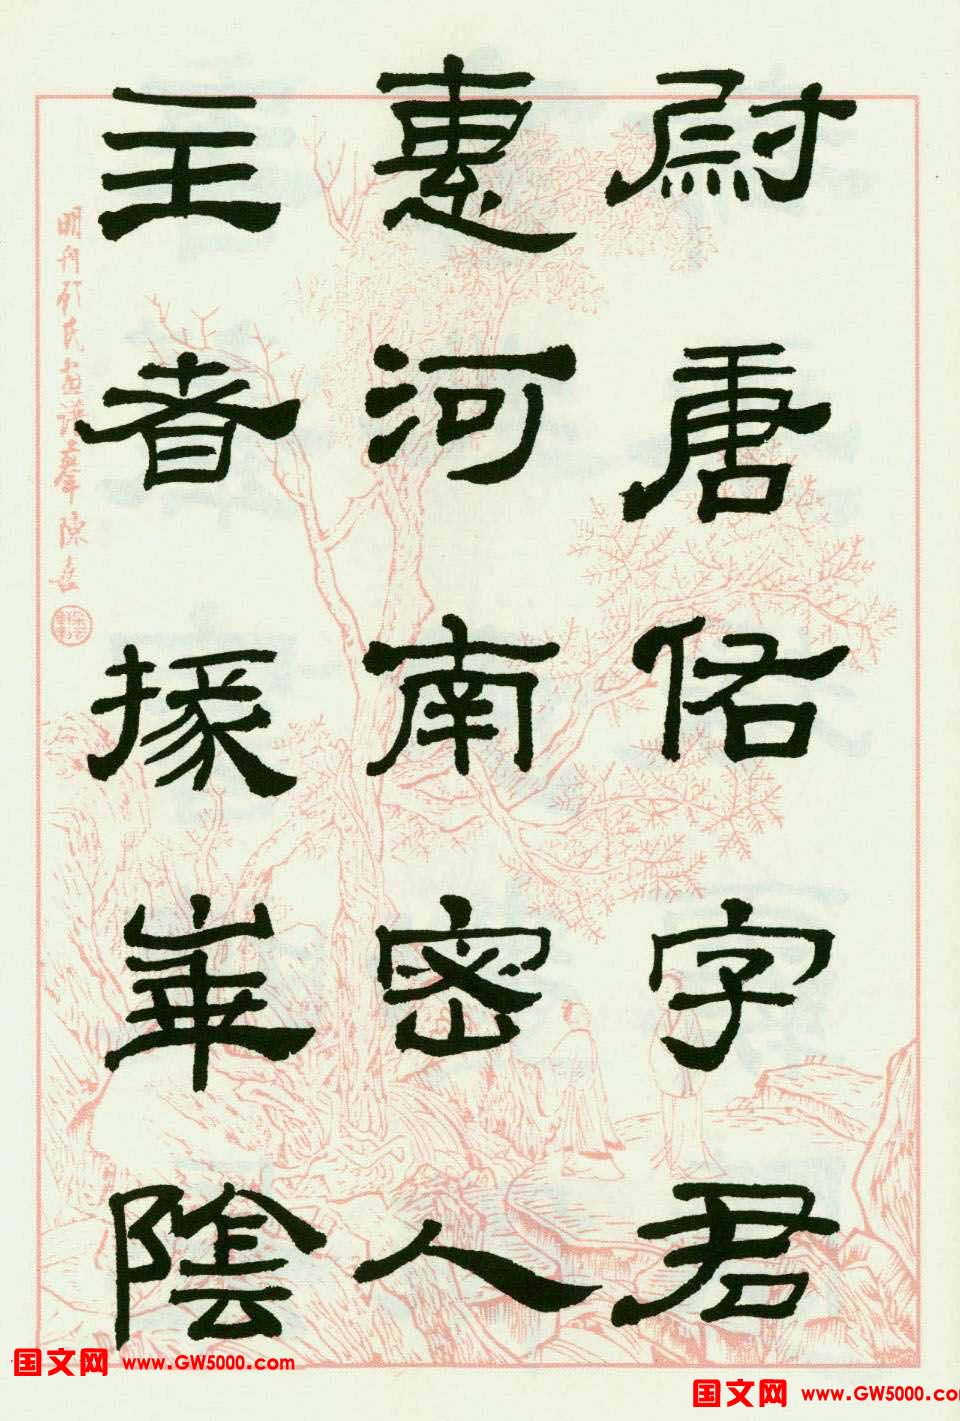 尉唐佑字君
惠河南密人
主者掾崋陰
明刊顾氏畫譜摹陳
国文网 www.GW5000.com
国文网 www.GW5000.com